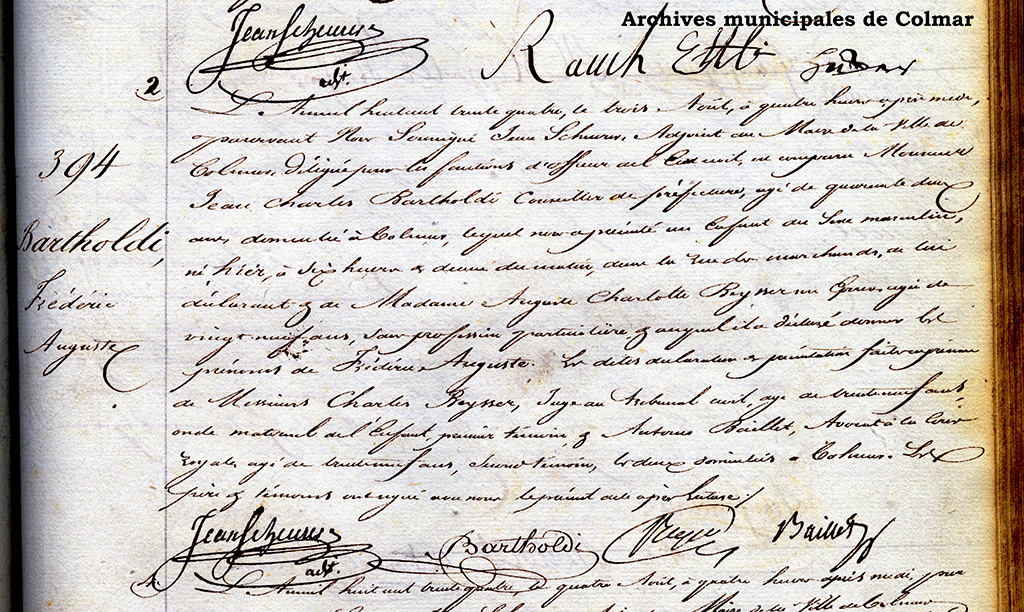 Archives municipales de Colmar
Jean Scheurer
adjt.
Rauch Ettli
2
394
Bartholdi,
Frédéric
Auguste
L'An mil huit cent trente quatre, le trois Août, à quatre heures après midi,
pardevant Nous Soussigné Jean Scheurer, Adjoint au Maire de la Ville de
Colmar, délégué pour les fonctions d'officier de l'Etat civil, est comparu Monsieur
Jean Charles Bartholdi Conseiller de préfecture, agé de quarante deux
ans domicilié à Colmar, lequel nous a présenté un Enfant du Sexe masculin,
né hier, à Six heures & demie du matin, dans la rue des marchands, de lui
déclarant & de Madame Auguste Charlotte Beysser son Epouse, agée de
vingt neuf ans, sans profession particulière & auquel il a déclaré donner les
prénoms de Frédéric Auguste. Les dites déclaration & présentation faites en présence
de Messieurs Charles Beysser, Juge au Tribunal civil, agé de trente neuf ans,
oncle maternel de l'Enfant, premier témoin, & Antoine Baillet, Avocat à la Cour
Royale, agé de trente neuf ans, second témoin, les deux domiciliés à Colmar. Les
père & témoins ont signé avec nous le présent acte après lecture.
Jean Scheurer
adjt.
Bartholdi
Beysser
Baillet
L'An mil huit cent trente quatre, le quatre Août, à quatre heures après midi, par
Maire de la Ville de Colmar